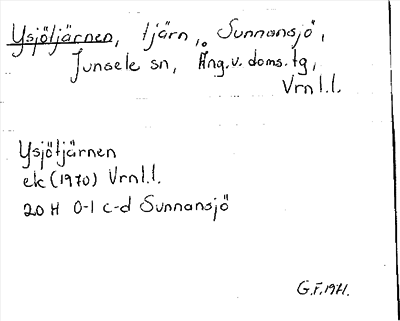 Ysjötjärnen, tjärn, Sunnansjö,
Junsele sn, Ång.v. doms. tg,
Vrnl.l.
Ysjötjärnen
ek (1970) Vrnl.l.
20 H 0-1 c-d Sunnansjö
G.F. 1971.